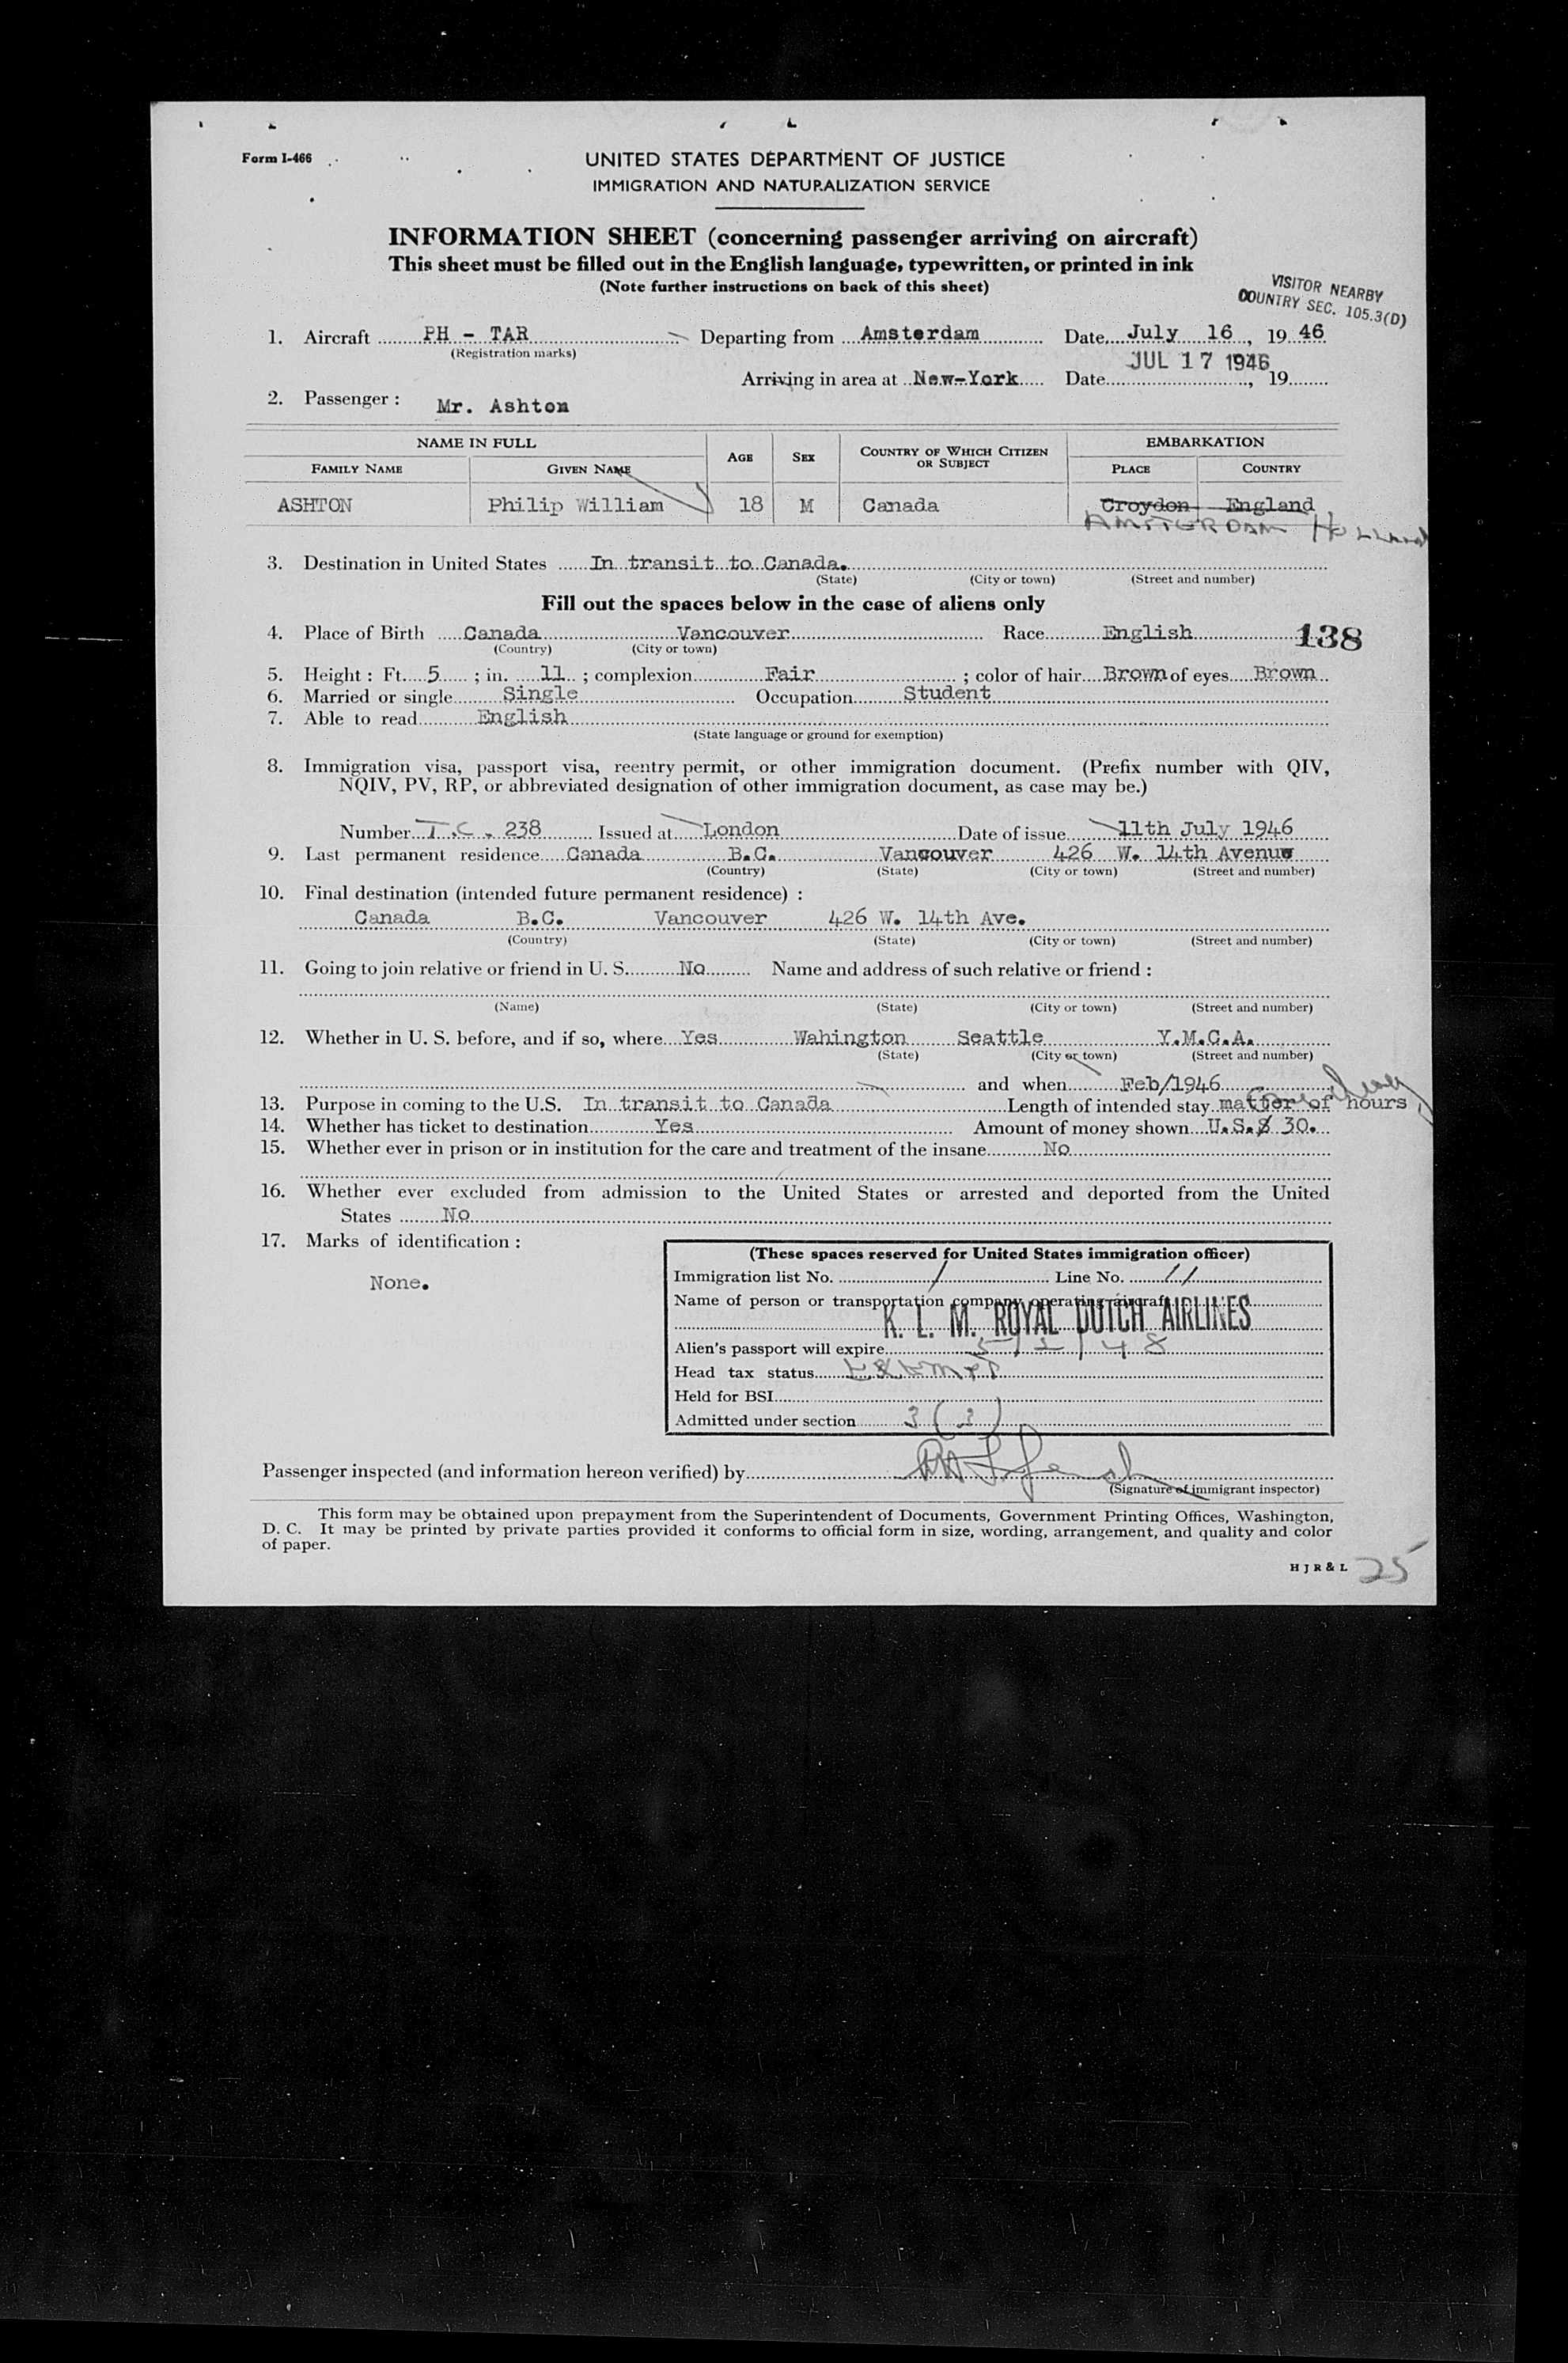 Form I-466
UNITED STATES DEPARTMENT OF JUSTICE
IMMIGRATION AND NATURALIZATION SERVICE
INFORMATION SHEET (concerning passenger arriving on aircraft)
This sheet must be filled out in the English language, typewritten, or printed in ink
(Note further instructions on back of this sheet)
VISITOR NEARBY
COUNTRY SEC. 105.3(D)
1. Aircraft PH - TAR Departing from Amsterdam Date July 16, 1946
(Registration marks)
JUL 17 1946
Arriving in area at New-York Date , 19
2. Passenger : Mr. Ashton
NAME IN FULL AGE SEX COUNTRY OF WHICH CITIZEN OR SUBJECT EMBARKATION
FAMILY NAME GIVEN NAME PLACE COUNTRY
ASHTON Philip William 18 M Canada Croydon England
AMSTERDAM HOLLAND
3. Destination in United States In transit to Canada.
(State) (City or town) (Street and number)
Fill out the spaces below in the case of aliens only
4. Place of Birth Canada Vancouver Race English 138
(Country) (City or town)
5. Height : Ft. 5 ; in. 11 ; complexion Fair ; color of hair Brown of eyes Brown
6. Married or single Single Occupation Student
7. Able to read English
(State language or ground for exemption)
8. Immigration visa, passport visa, reentry permit, or other immigration document. (Prefix number with QIV,
NQIV, PV, RP, or abbreviated designation of other immigration document, as case may be.)
Number T.C. 238 Issued at London Date of issue 11th July 1946
9. Last permanent residence Canada B.C. Vancouver 426 W. 14th Avenue
(Country) (State) (City or town) (Street and number)
10. Final destination (intended future permanent residence) :
Canada B.C. Vancouver 426 W. 14th Ave.
(Country) (State) (City or town) (Street and number)
11. Going to join relative or friend in U. S. No Name and address of such relative or friend :
(Name) (State) (City or town) (Street and number)
12. Whether in U. S. before, and if so, where Yes Wahington Seattle Y.M.C.A.
(State) (City or town) (Street and number)
and when Feb/1946
13. Purpose in coming to the U.S. In transit to Canada Length of intended stay matter of hours
14. Whether has ticket to destination Yes Amount of money shown U.S.$ 30.
15. Whether ever in prison or in institution for the care and treatment of the insane No
16. Whether ever excluded from admission to the United States or arrested and deported from the United
States No
17. Marks of identification :
None.
(These spaces reserved for United States immigration officer)
Immigration list No. 1 Line No. 11
Name of person or transportation company operating aircraft
K. L. M. ROYAL DUTCH AIRLINES
Alien's passport will expire 5/2/48
Head tax status EXEMPT
Held for BSI
Admitted under section 3 (3)
Passenger inspected (and information hereon verified) by
(Signature of immigrant inspector)
This form may be obtained upon prepayment from the Superintendent of Documents, Government Printing Offices, Washington,
D. C. It may be printed by private parties provided it conforms to official form in size, wording, arrangement, and quality and color
of paper.
H J R & L 25